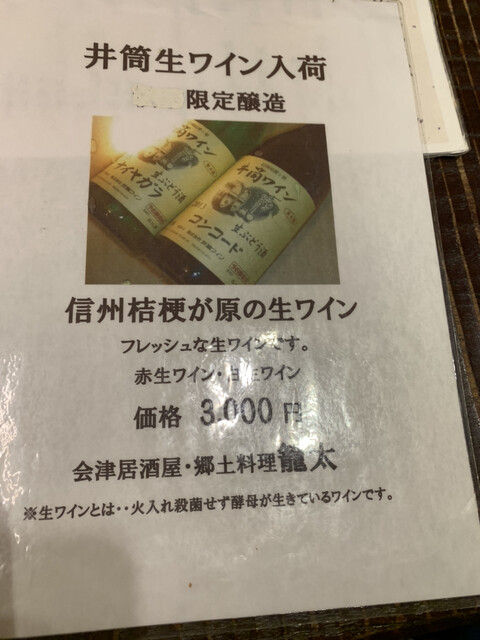 井筒生ワイン入荷
限定醸造
井筒ワイン
生ぶどう酒
ナイヤガラ
井筒ワイン
生ぶどう酒
コンコード
信州桔梗が原の生ワイン
フレッシュな生ワインです。
赤生ワイン・白生ワイン
価格 3.000 円
会津居酒屋・郷土料理龍太
※生ワインとは・・火入れ殺菌せず酵母が生きているワインです。